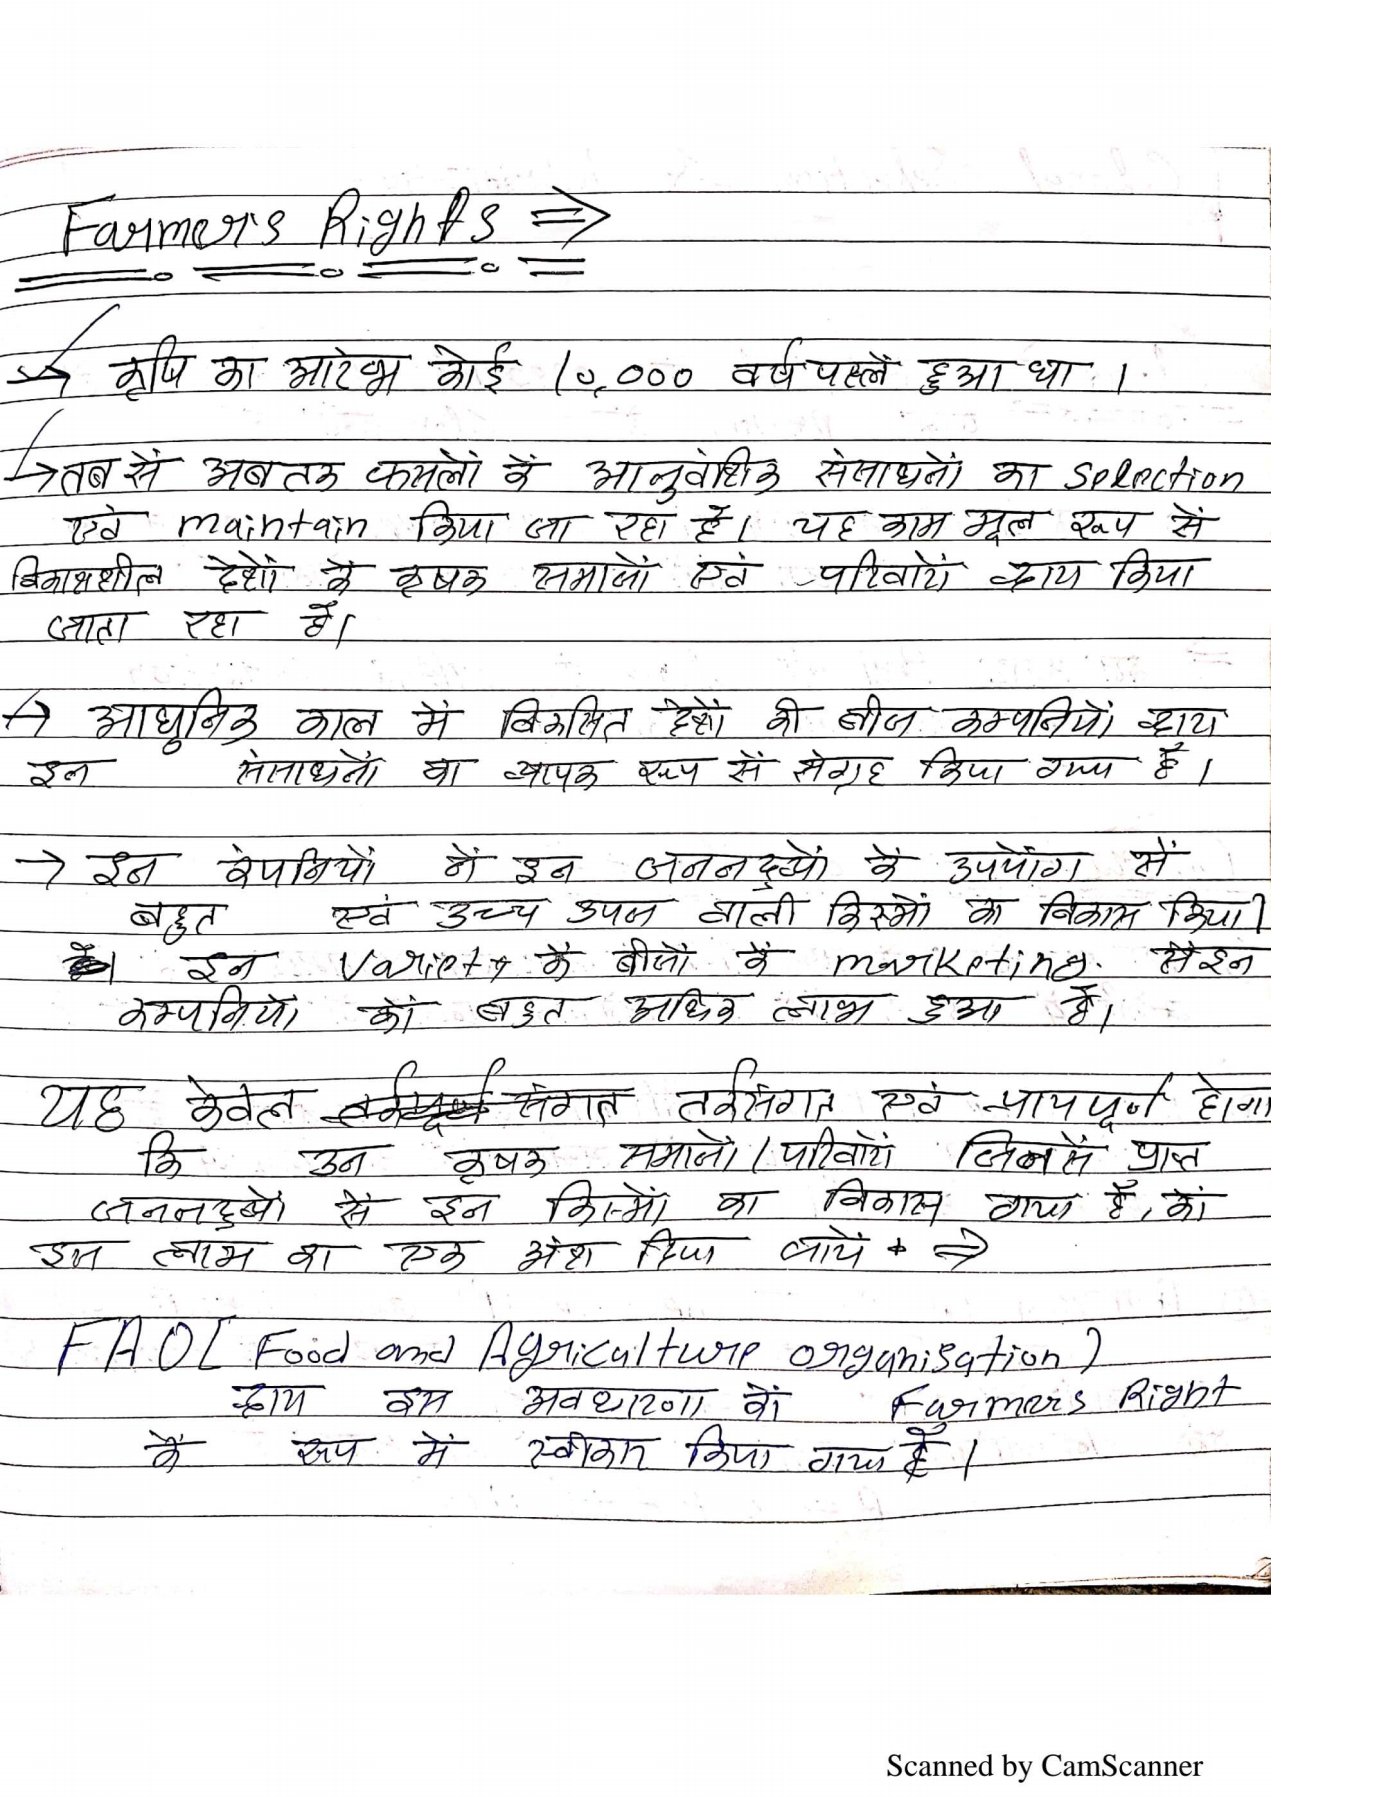 Farmer's Rights ⇒
→ कृषि का आरंभ कोई 10,000 वर्ष पहले हुआ था ।
→ तब सें अब तक फसलों कें आनुवंशिक संसाधनों का selection
एवं maintain किया जा रहा हैं। यह काम मूल रूप सें
विकासशील देशों कें कृषक समाजों एवं परिवारों द्वारा किया
जाता रहा हैं।
→ आधुनिक काल में विकसित देशों की बीज कम्पनियों द्वारा
इन संसाधनों का व्यापक रूप सें संग्रह किया गया हैं ।
→ इन कंपनियों नें इन जननद्रव्यों कें उपयोग सें
बहुत एवं उच्च उपज वाली किस्मों का विकास किया।
हैं। इन Variety कें बीजों कें marketing. सें इन
कम्पनियों कों बहुत अधिक लाभ हुआ हैं।
यह केवल संगत तर्कसंगत एवं न्यायपूर्ण होगा
कि उन कृषक समाजों / परिवारों जिनसें प्राप्त
जननद्रव्यों सें इन किस्मों का विकास गया हैं, कों
इस लाभ का एक अंश दिया जायें ⇒
FAO ( Food and Agriculture organisation )
द्वारा इस अवधारणा कों Farmers Right
कें रूप में स्वीकार किया गया हैं ।
Scanned by CamScanner